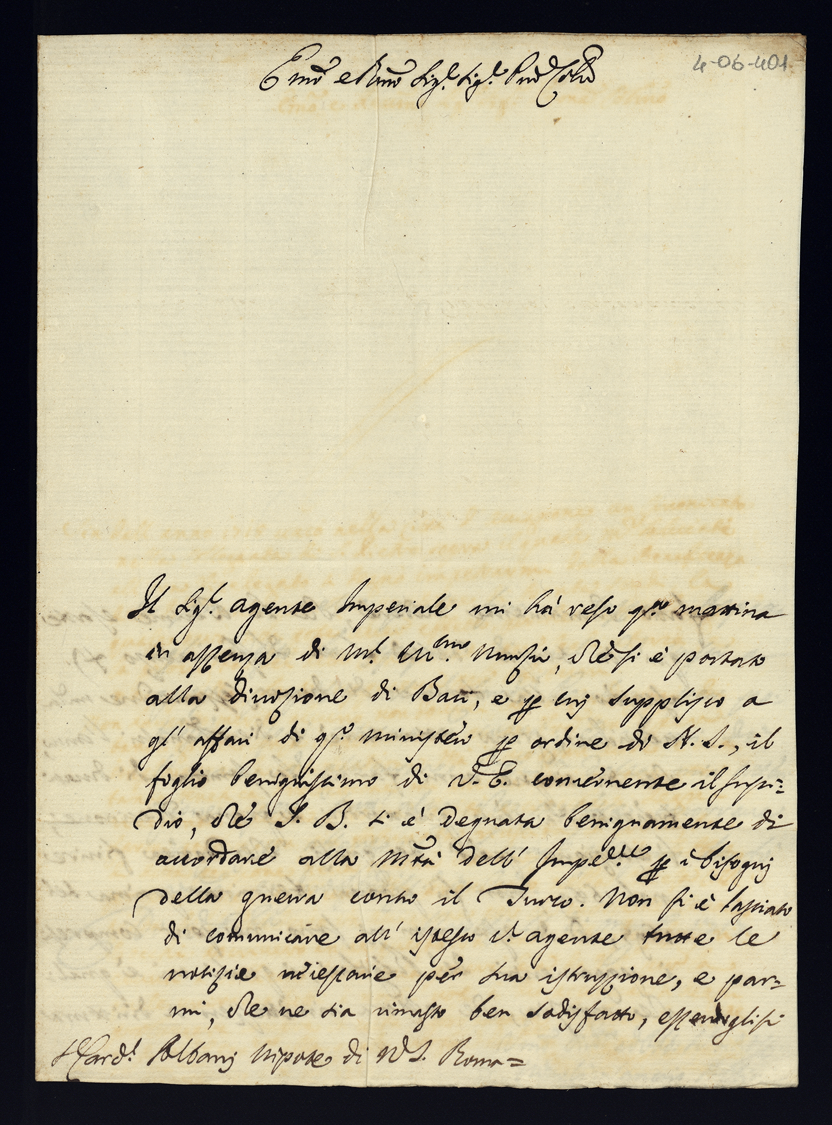 Emo e Rmo Sigr. Sigr. Pne Colmo
4-06-401
Il Sigr. Agente Imperiale mi hà reso qsta mattina
in assenza di Mr. Illmo Nunzio, che si è portato
alla divozione di Bari, e per cui supplisco a
gl' affari di qsto ministero per ordine di N. S., il
foglio benignissimo di V. E. concernente il sussi=
dio, che S. B. si è degnata benignamente di
accordare alla Mtà dell' Impe.re per i bisogni
della guerra contro il Turco. Non si è lasciato
di comunicare all' istesso Sr. agente tutte le
notizie necessarie per sua istruzzione, e par=
mi, che ne sia rimasto ben sodisfatto, essendoglisi
Sr Card. Albani Nipote di N. S. Roma=